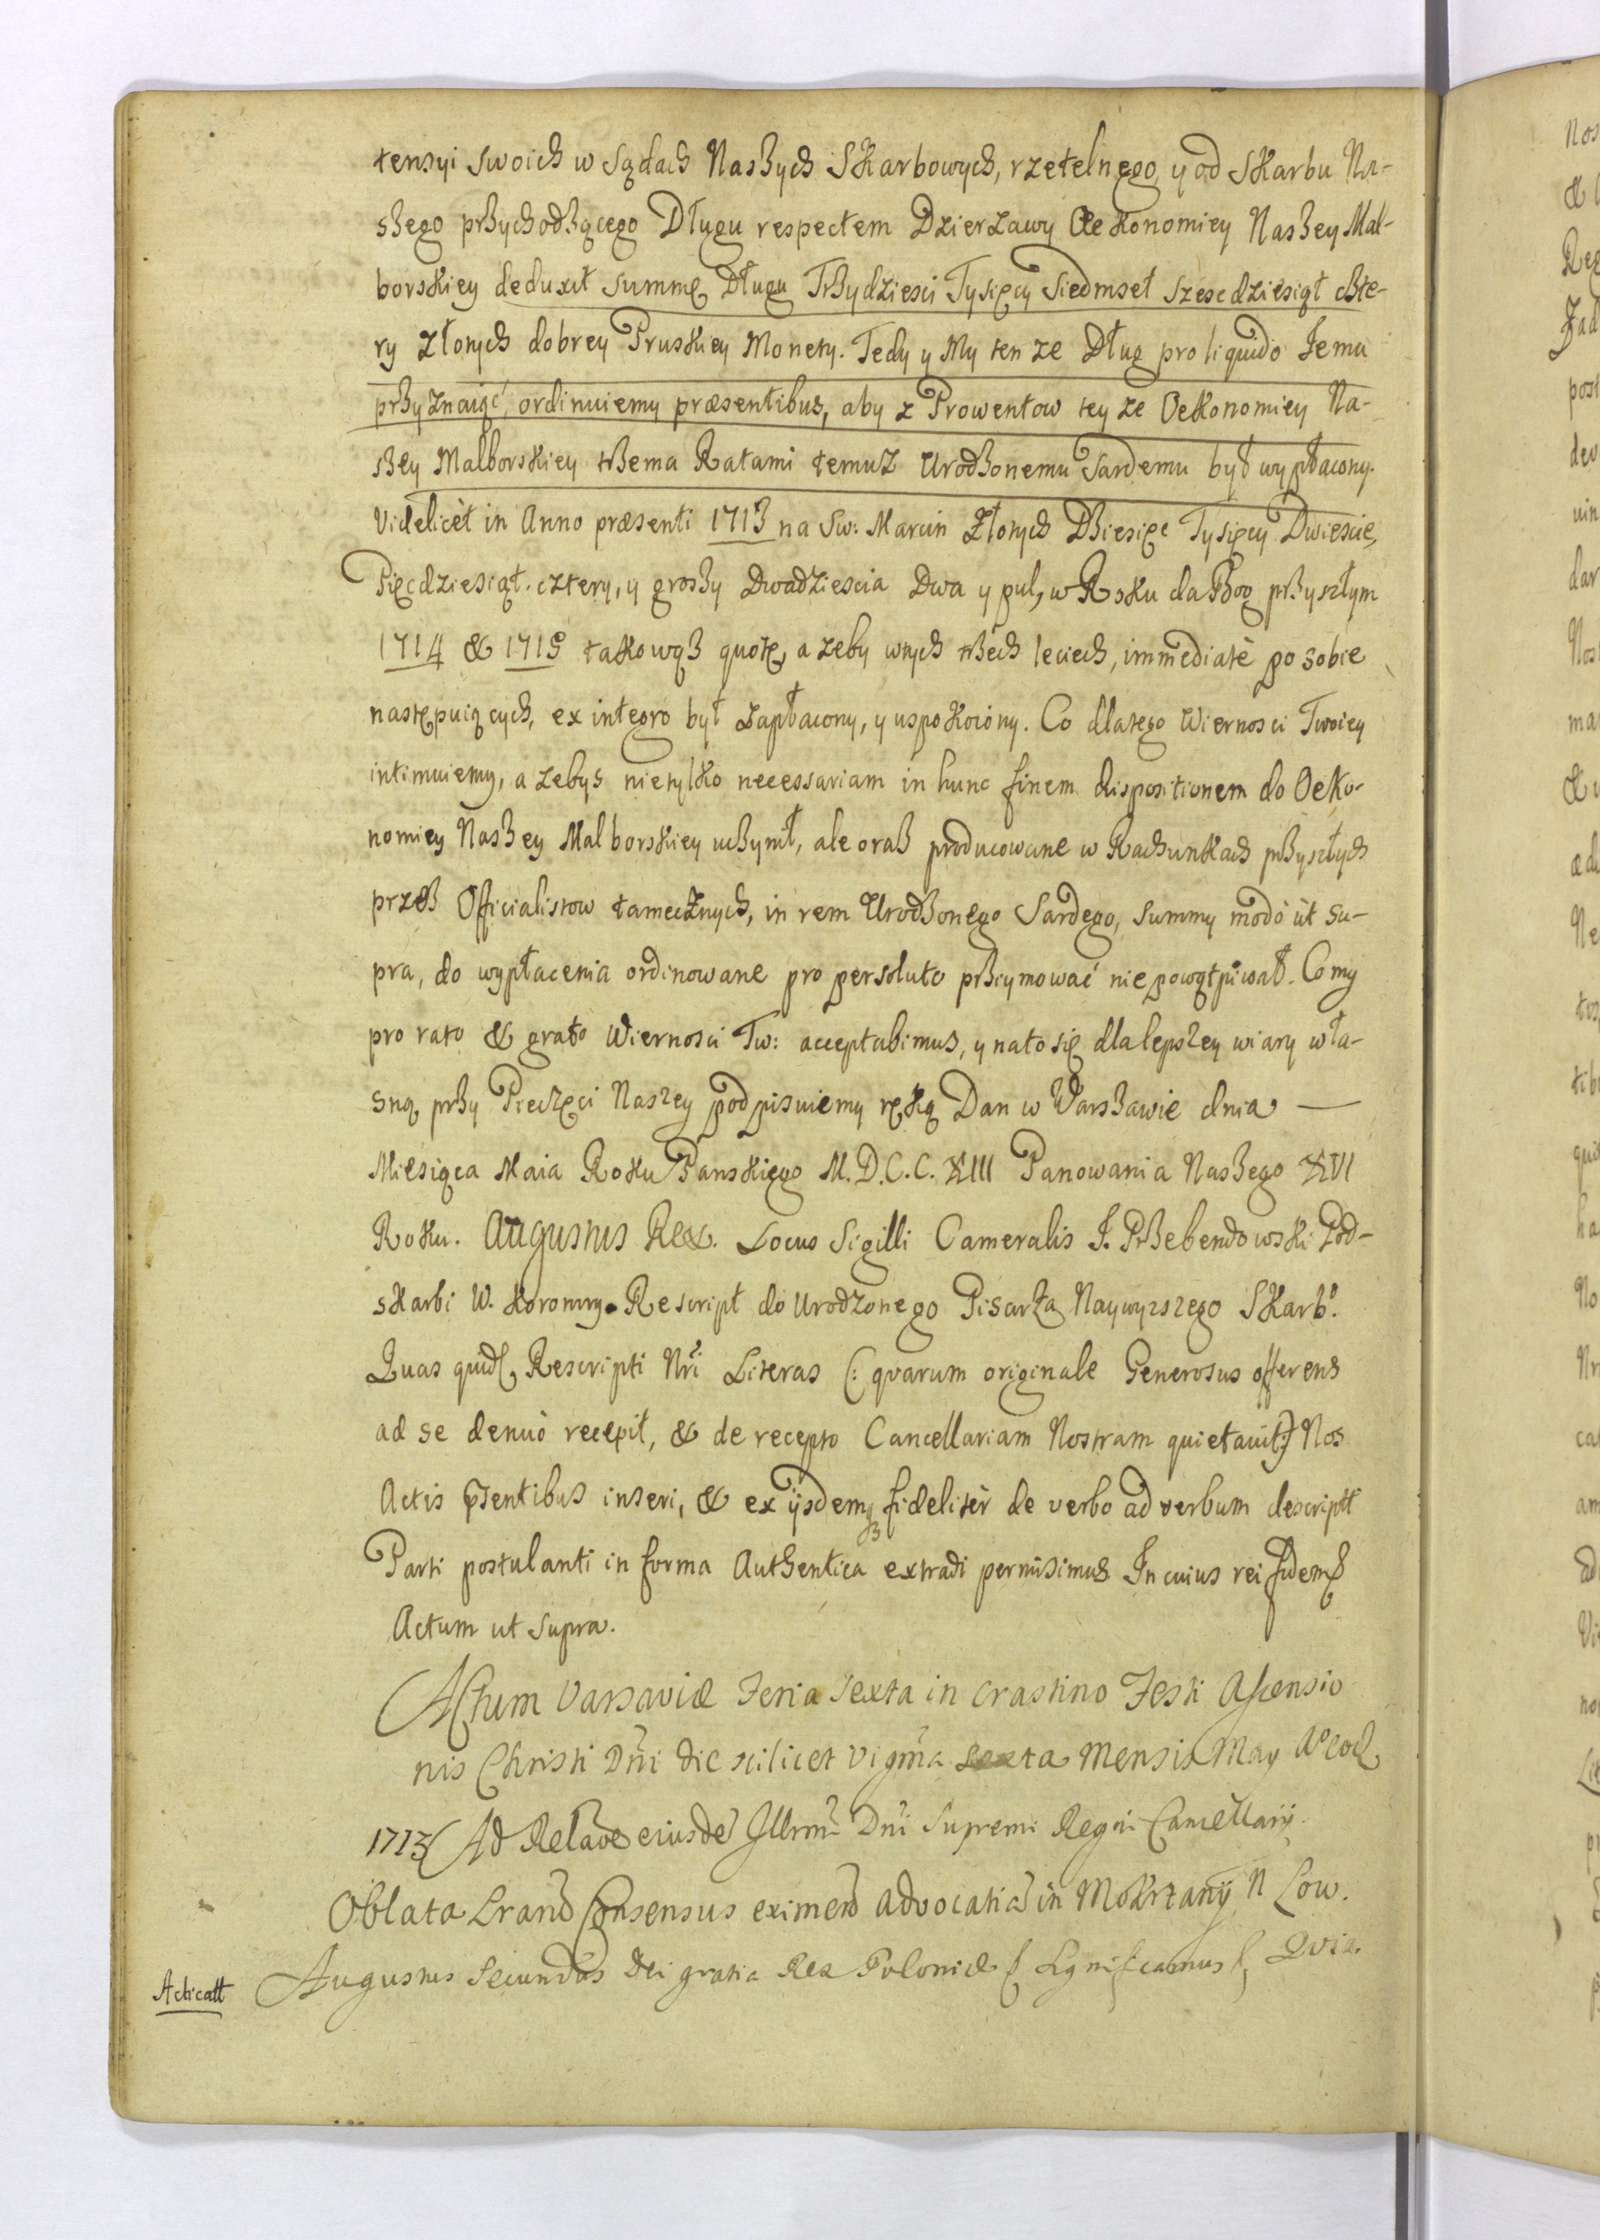 tensyi Swoich w Sądach Naszych Skarbowych, rzetelnego, y od Skarbu Na-
szego przychodzącego Długu respectem Dzierzawy Oekonomiey Naszey Mal-
borskiey deduxit Summę Długu Trzydziesci Tysięcy Siedmset Szescdziesiąt czte-
ry Złotych dobrey Pruskiey Monety. Tedy y My ten ze Dług pro liquido Jemu
przyznaiąć, ordinuiemy præsentibus, aby z Prowentow tey ze Oekonomiey Na-
szey Malborskiey trzema Ratami temuz Urodzonemu Sardemu był wypłacony.
Videlicèt in Anno præsenti 1713 na Sw: Marcin Złotych Dziesięc Tysięcy Dwiescie,
Pięcdziesiąt cztery, y groszy Dwadziescia Dwa y pul, w Roku da Bog przyszłym
1714 & 1715 takowąz quotę, a zeby wtych trzech leciech, immediatè po sobie
następuiących, ex integro był zapłacony, y uspokoiony. Co dlatego Wiernosci Twoiey
intimuiemy, a zebys nietylko necessariam in hunc finem dispositionem do Oeko-
nomiey Naszey Malborskiey uczynił, ale oraz producowane w Rachunkach przyszłych
przez Officialistow tamecznych, in rem Urodzonego Sardego, Summy modò ùt su-
pra, do wypłacenia ordinowane pro persoluto przyimować nie powątpiwał. Co my
pro rato & grato Wiernosci Tw: acceptabimus, y nato się dla lepszey wiary wła-
sną przy Pieczęci Naszey podpisuiemy ręką Dan w Warszawie dnia —
Miesiąca Maia Roku Panskiego M.D.C.C.XIII Panowania Naszego XVI
Roku. Augustus Rex. Locus Sigilli Cameralis J. Przebendowski Pod-
skarbi W. Koronny. Rescript do Urodzonego Pisarza Naywyzszego Skarbo.
Quas quid. Rescripti Nri Literas (: quarum originale Generosus offerens
ad se denuò recepit, & de recepto Cancellariam Nostram quietavit :) Nos
Actis psentibus inseri, & ex ijsdemq fidelitèr de verbo ad verbum descriptt
Parti postulanti in forma Authentica extradi permisimus In cuius rei fidem
Actum ut supra.
Actum Varsaviæ Feria Sexta in crastino Festi Ascensio
nis Christi Dni die scilicet vigma Sexta Mensis May Ao eod
1713 Ad Relaõe eiusde Illrmi Dni Supremi Regni Cancellarij
Oblata Lrarũ Consensus eximend advocatia in Mokrzany N Low.
Acticatt Augustus Secundus Dei gratia Rex Poloniæ Significamus Quia.